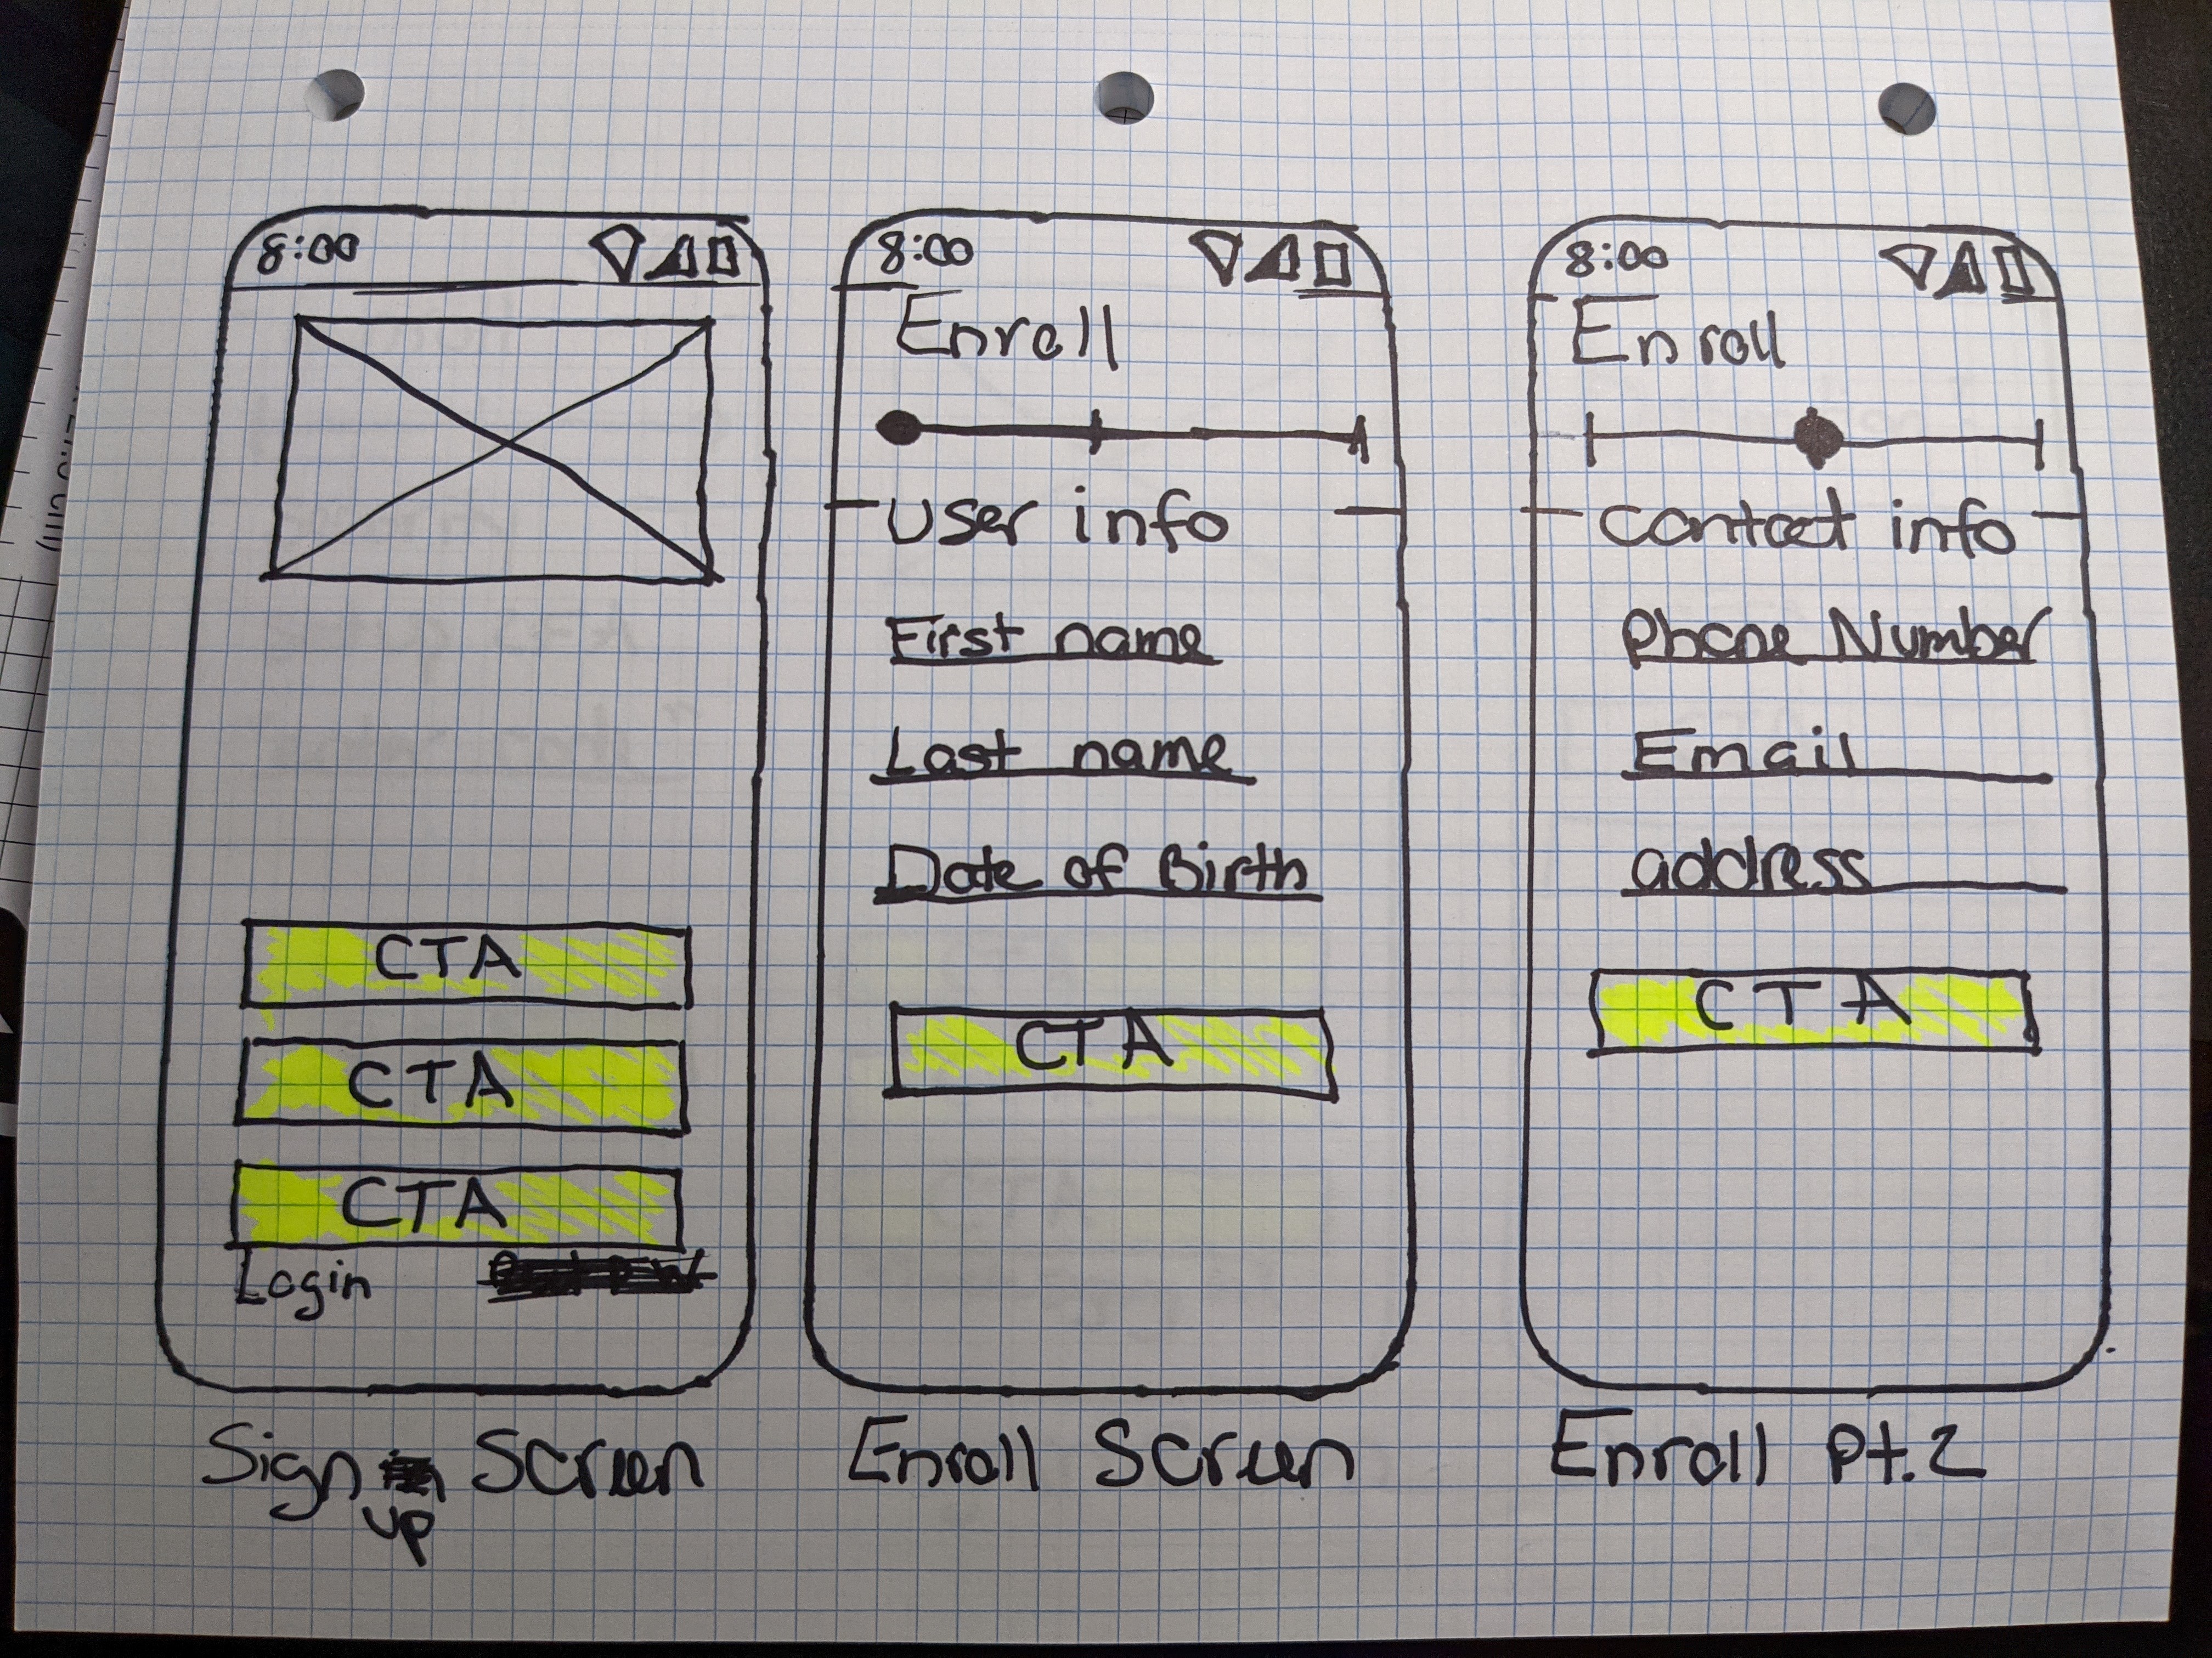 8:00
CTA
CTA
CTA
Login
Sign up Screen
8:00
Enroll
User info
First name
Last name
Date of Birth
CTA
Enroll Screen
8:00
Enroll
Contact info
Phone Number
Email
address
CTA
Enroll Pt.2